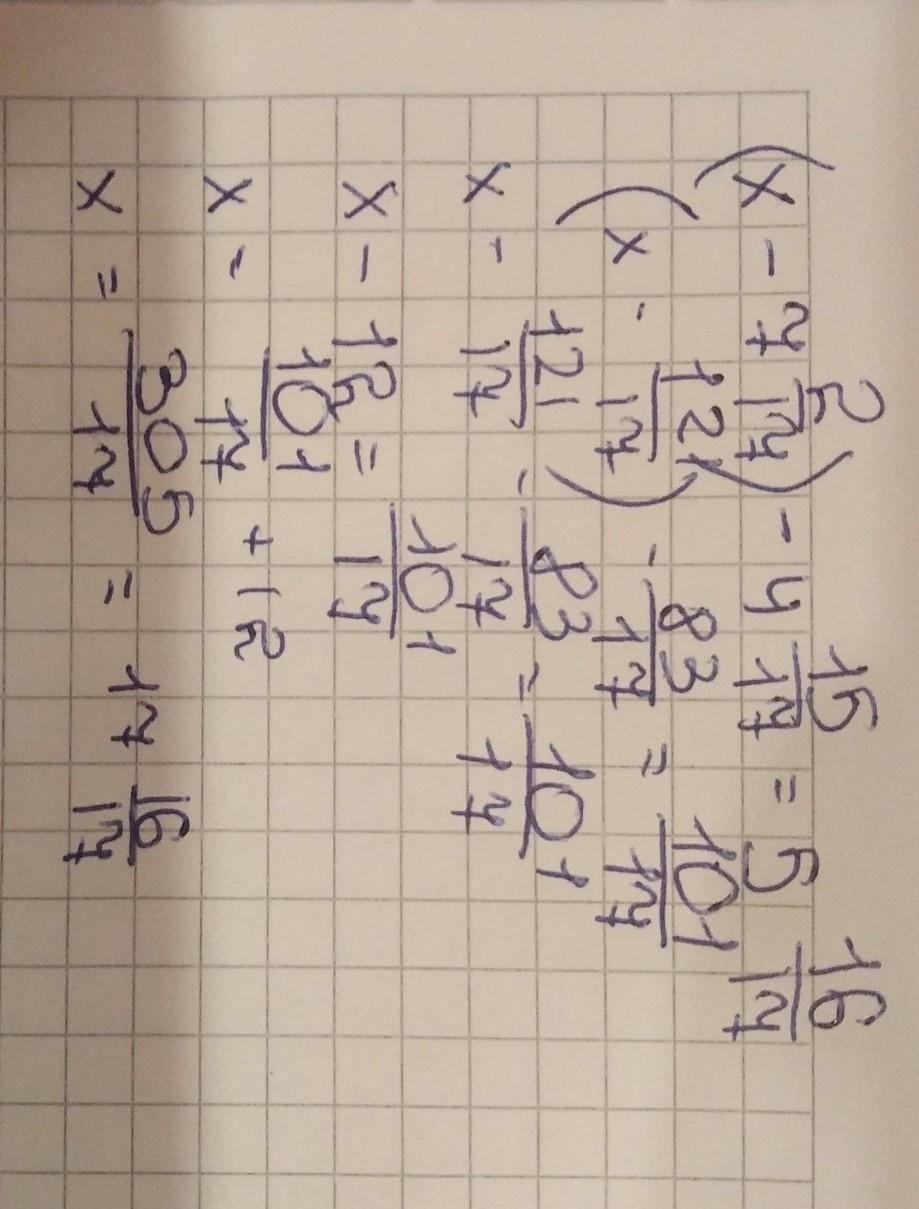 (x - 7 2/17) - 4 15/17 = 5 16/17
(x - 121/17) - 83/17 = 101/17
x - 121/17 - 83/17 = 101/17
x - 12 = 101/17
x - 101/17 + 12
x = 305/17 = 17 16/17